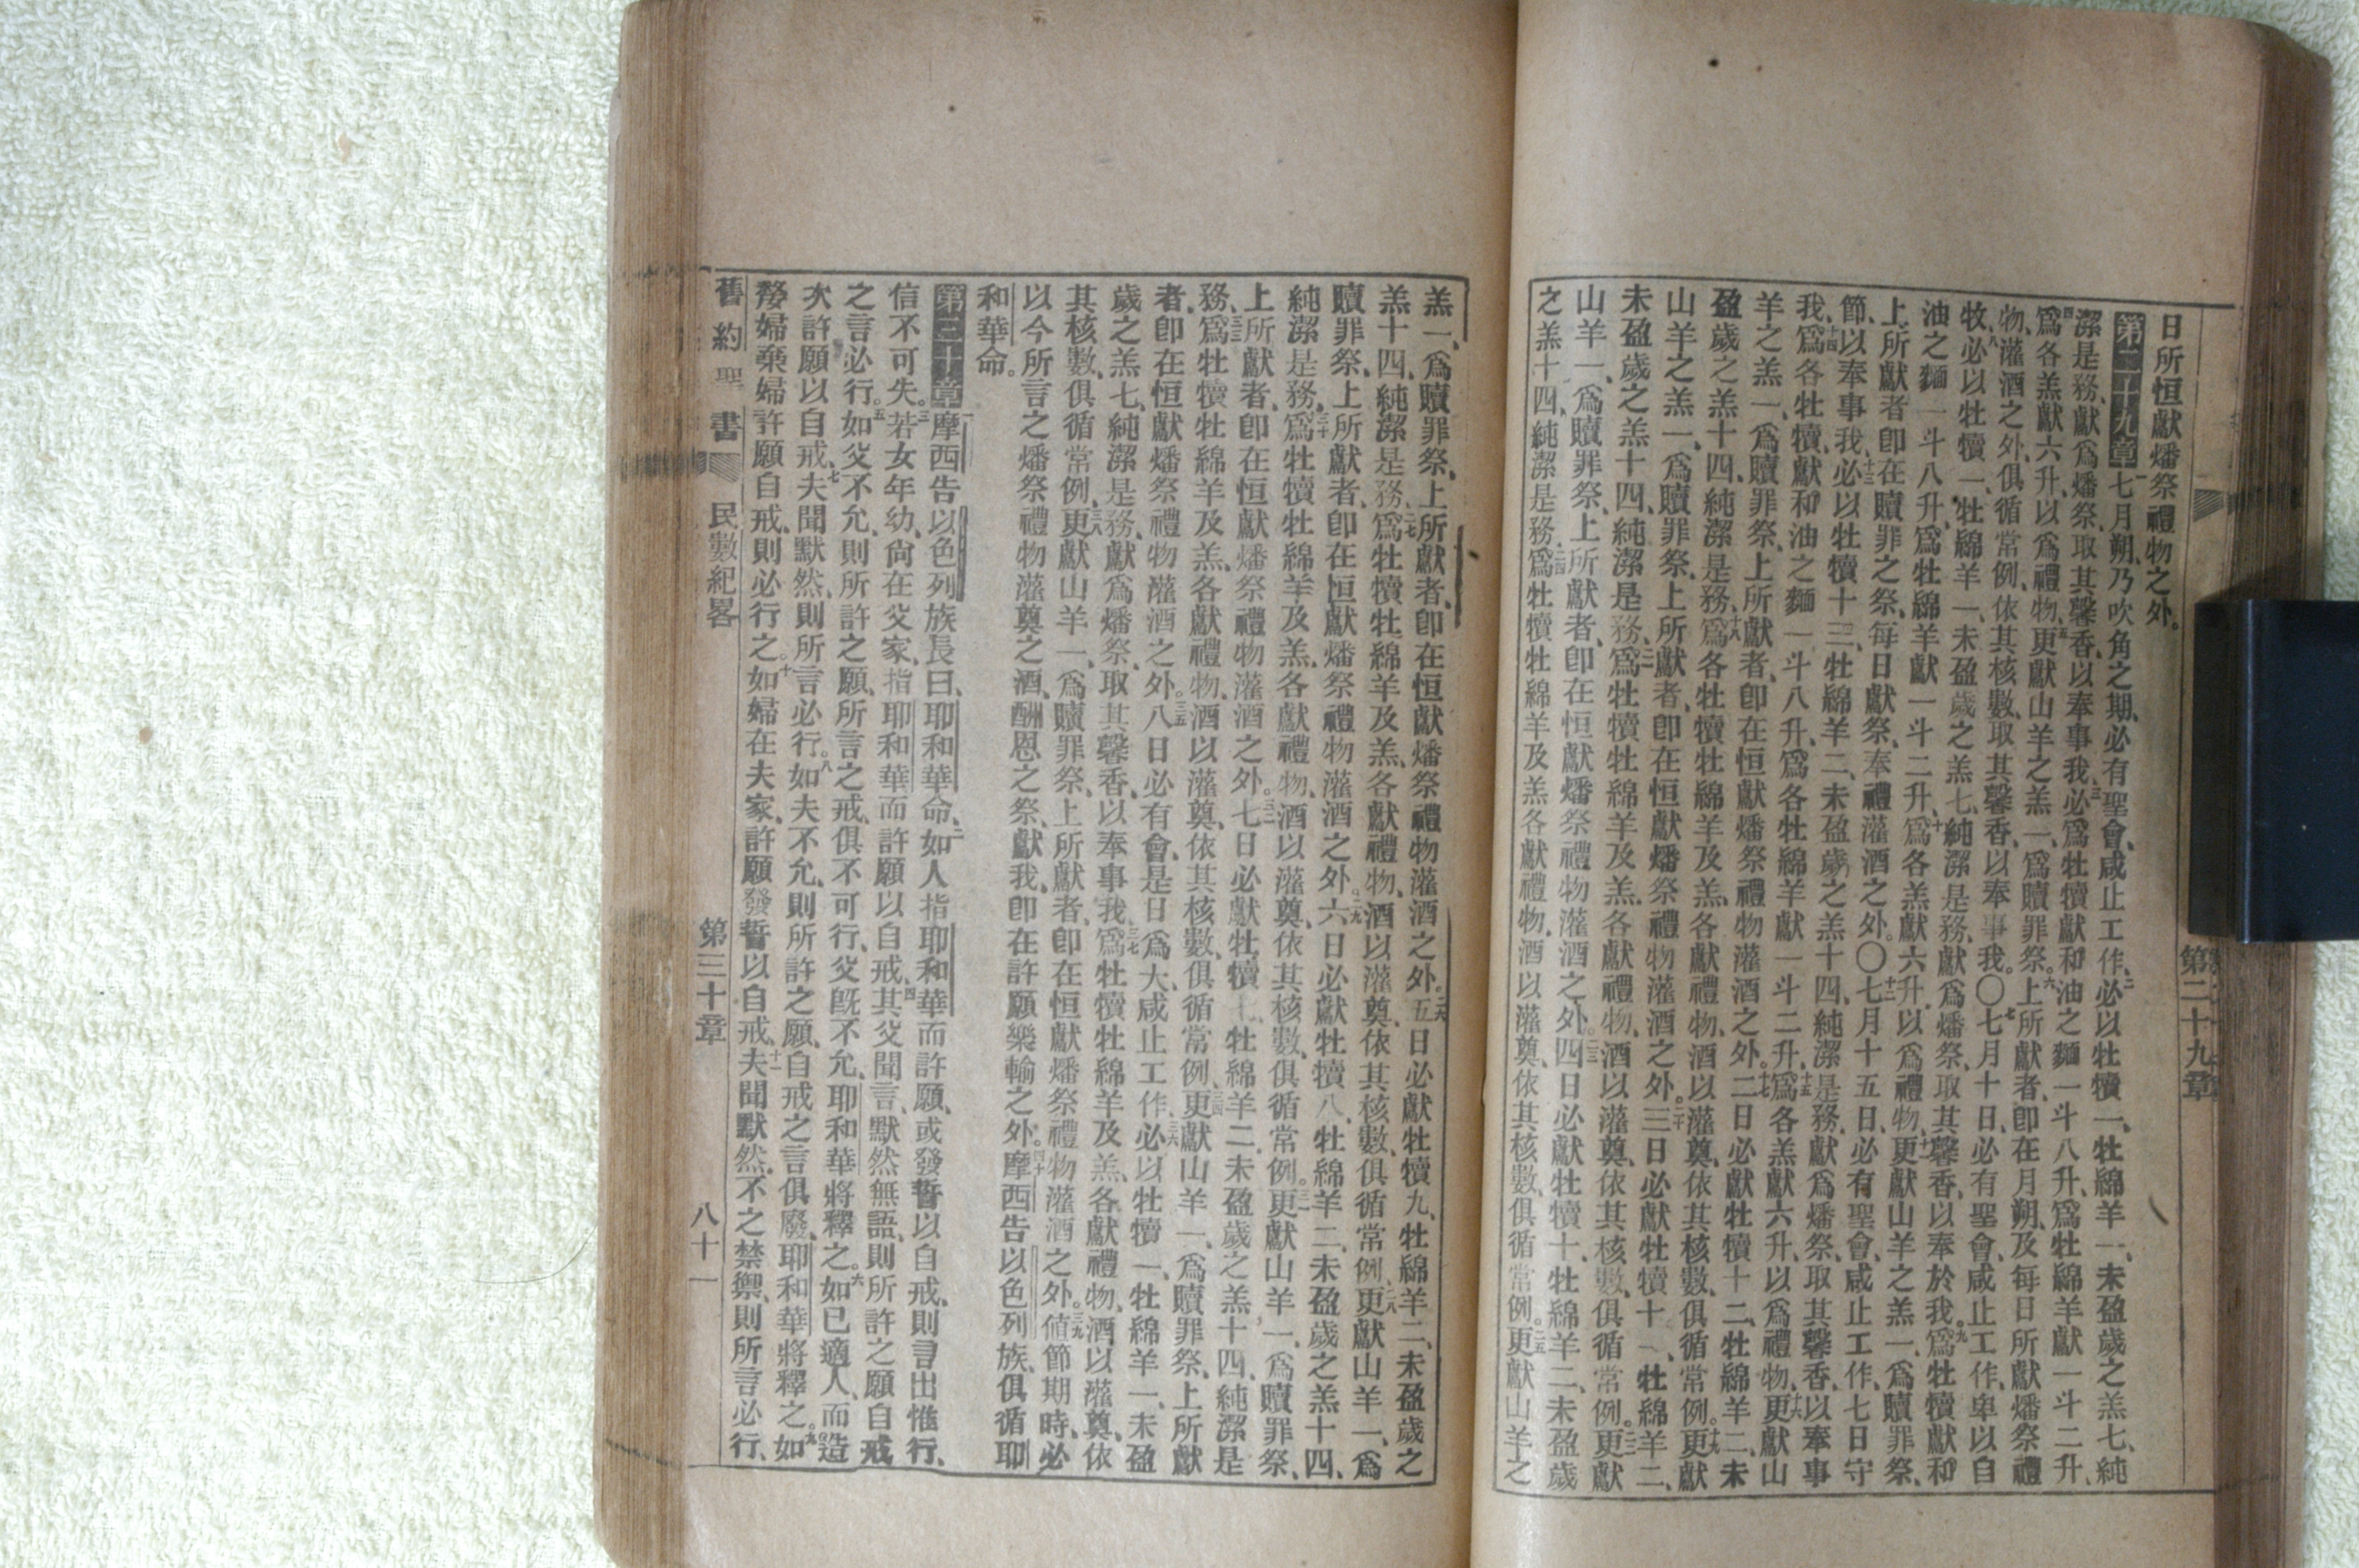 日所恒獻燔祭禮物之外。
第二十九章 一七月朔、乃吹角之期、必有聖會、咸止工作、二必以牡犢一、牡綿羊一、未盈歲之羔七、純
潔是務、獻爲燔祭、取其馨香、以奉事我、三必爲牡犢獻和油之麵一斗八升、爲牡綿羊獻一斗二升、
四爲各羔獻六升、以爲禮物、五更獻山羊之羔一、爲贖罪祭。六上所獻者、卽在月朔、及每日所獻燔祭禮
物、灌酒之外、俱循常例、依其核數、取其馨香、以奉事我。〇七七月十日、必有聖會、咸止工作、卑以自
牧、八必以牡犢一、牡綿羊一、未盈歲之羔七、純潔是務、獻爲燔祭、取其馨香、以奉於我。九爲牡犢獻和
油之麵一斗八升、爲牡綿羊獻一斗二升、十爲各羔獻六升、以爲禮物、十一更獻山羊之羔一、爲贖罪祭、
上所獻者、卽在贖罪之祭、每日獻祭、奉禮灌酒之外。〇十二七月十五日、必有聖會、咸止工作、七日守
節、以奉事我、十三必以牡犢十三、牡綿羊二、未盈歲之羔十四、純潔是務、獻爲燔祭、取其馨香、以奉事
我、十四爲各牡犢、獻和油之麵一斗八升、爲各牡綿羊獻一斗二升、十五爲各羔獻六升、以爲禮物、十六更獻山
羊之羔一、爲贖罪祭、上所獻者、卽在恒獻燔祭禮物灌酒之外。十七二日必獻牡犢十二、牡綿羊二、未
盈歲之羔十四、純潔是務、十八爲各牡犢牡綿羊及羔、各獻禮物、酒以灌奠、依其核數、俱循常例。十九更獻
山羊之羔一、爲贖罪祭、上所獻者、卽在恒獻燔祭禮物灌酒之外。二十三日必獻牡犢十一、牡綿羊二、
未盈歲之羔十四、純潔是務、二一爲牡犢牡綿羊及羔、各獻禮物、酒以灌奠、依其核數、俱循常例。二二更獻
山羊一、爲贖罪祭、上所獻者、卽在恒獻燔祭禮物灌酒之外。二三四日必獻牡犢十、牡綿羊二、未盈歲
之羔十四、純潔是務、二四爲牡犢牡綿羊及羔各獻禮物、酒以灌奠、依其核數、俱循常例。二五更獻山羊之
第二十九章
羔一、爲贖罪祭、上所獻者、卽在恒獻燔祭禮物灌酒之外。二六五日必獻牡犢九、牡綿羊二、未盈歲之
羔十四、純潔是務、二七爲牡犢牡綿羊及羔、各獻禮物、酒以灌奠、依其核數、俱循常例、二八更獻山羊一、爲
贖罪祭、上所獻者、卽在恒獻燔祭禮物灌酒之外。二九六日必獻牡犢八、牡綿羊二、未盈歲之羔十四、
純潔是務、三十爲牡犢牡綿羊及羔、各獻禮物、酒以灌奠、依其核數、俱循常例。三一更獻山羊一、爲贖罪祭、
上所獻者、卽在恒獻燔祭禮物灌酒之外。三二七日必獻牡犢七、牡綿羊二、未盈歲之羔十四、純潔是
務、三三爲牡犢牡綿羊及羔、各獻禮物、酒以灌奠、依其核數、俱循常例、三四更獻山羊一、爲贖罪祭、上所獻
者、卽在恒獻燔祭禮物灌酒之外。三五八日必有會、是日爲大、咸止工作、三六必以牡犢一、牡綿羊一、未盈
歲之羔七、純潔是務、獻爲燔祭、取其馨香、以奉事我、三七爲牡犢牡綿羊及羔、各獻禮物、酒以灌奠、依
其核數、俱循常例、三八更獻山羊一、爲贖罪祭、上所獻者、卽在恒獻燔祭禮物灌酒之外。三九値節期時、必
以今所言之燔祭禮物灌奠之酒、酬恩之祭、獻我、卽在許願樂輸之外。四十摩西告以色列族、俱循耶
和華命。
第三十章 一摩西告以色列族長曰、耶和華命、二如人指耶和華而許願、或發誓以自戒、則言出惟行、
信不可失。三若女年幼、尙在父家、指耶和華而許願以自戒、四其父聞言、默然無語、則所許之願自戒
之言必行。五如父不允、則所許之願、所言之戒、俱不可行、父旣不允、耶和華將釋之。六如已適人、而造
次許願以自戒、七夫聞默然、則所言必行。八如夫不允、則所許之願、自戒之言俱廢、耶和華將釋之。九如
嫠婦棄婦許願自戒、則必行之。十如婦在夫家、許願發誓以自戒、十一夫聞默然、不之禁禦、則所言必行、
舊約聖書 民數紀畧 第三十章 八十一